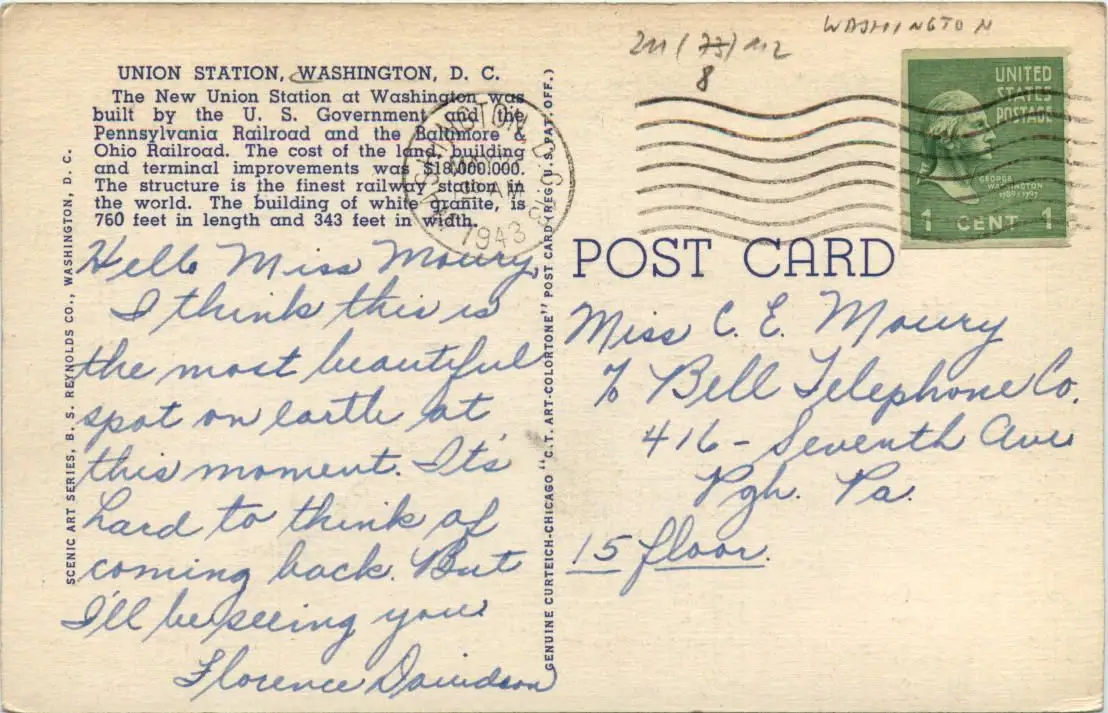 WASHINGTON
8
UNION STATION, WASHINGTON, D. C.
The New Union Station at Washington was
built by the U. S. Government and the
Pennsylvania Railroad and the Baltimore &
Ohio Railroad. The cost of the land, building
and terminal improvements was $18,000,000.
The structure is the finest railway station in
the world. The building of white granite, is
760 feet in length and 343 feet in width.
Hello Miss Moury,
I think this is
the most beautiful
spot on earth at
this moment. It's
hard to think of
coming back. But
I'll be seeing you
Florence Davidson
SCENIC ART SERIES, B. S. REYNOLDS CO., WASHINGTON, D. C.
GENUINE CURTEICH-CHICAGO "C.T. ART-COLORTONE" POST CARD (REG. U.S. PAT. OFF.)
WASHINGTON, D.C.
1943
UNITED
STATES
POSTAGE
GEORGE
WASHINGTON
1789-1797
1 CENT 1
POST CARD
Miss C. E. Moury
% Bell Telephone Co.
416 - Seventh Ave
Pgh. Pa.
15 floor.